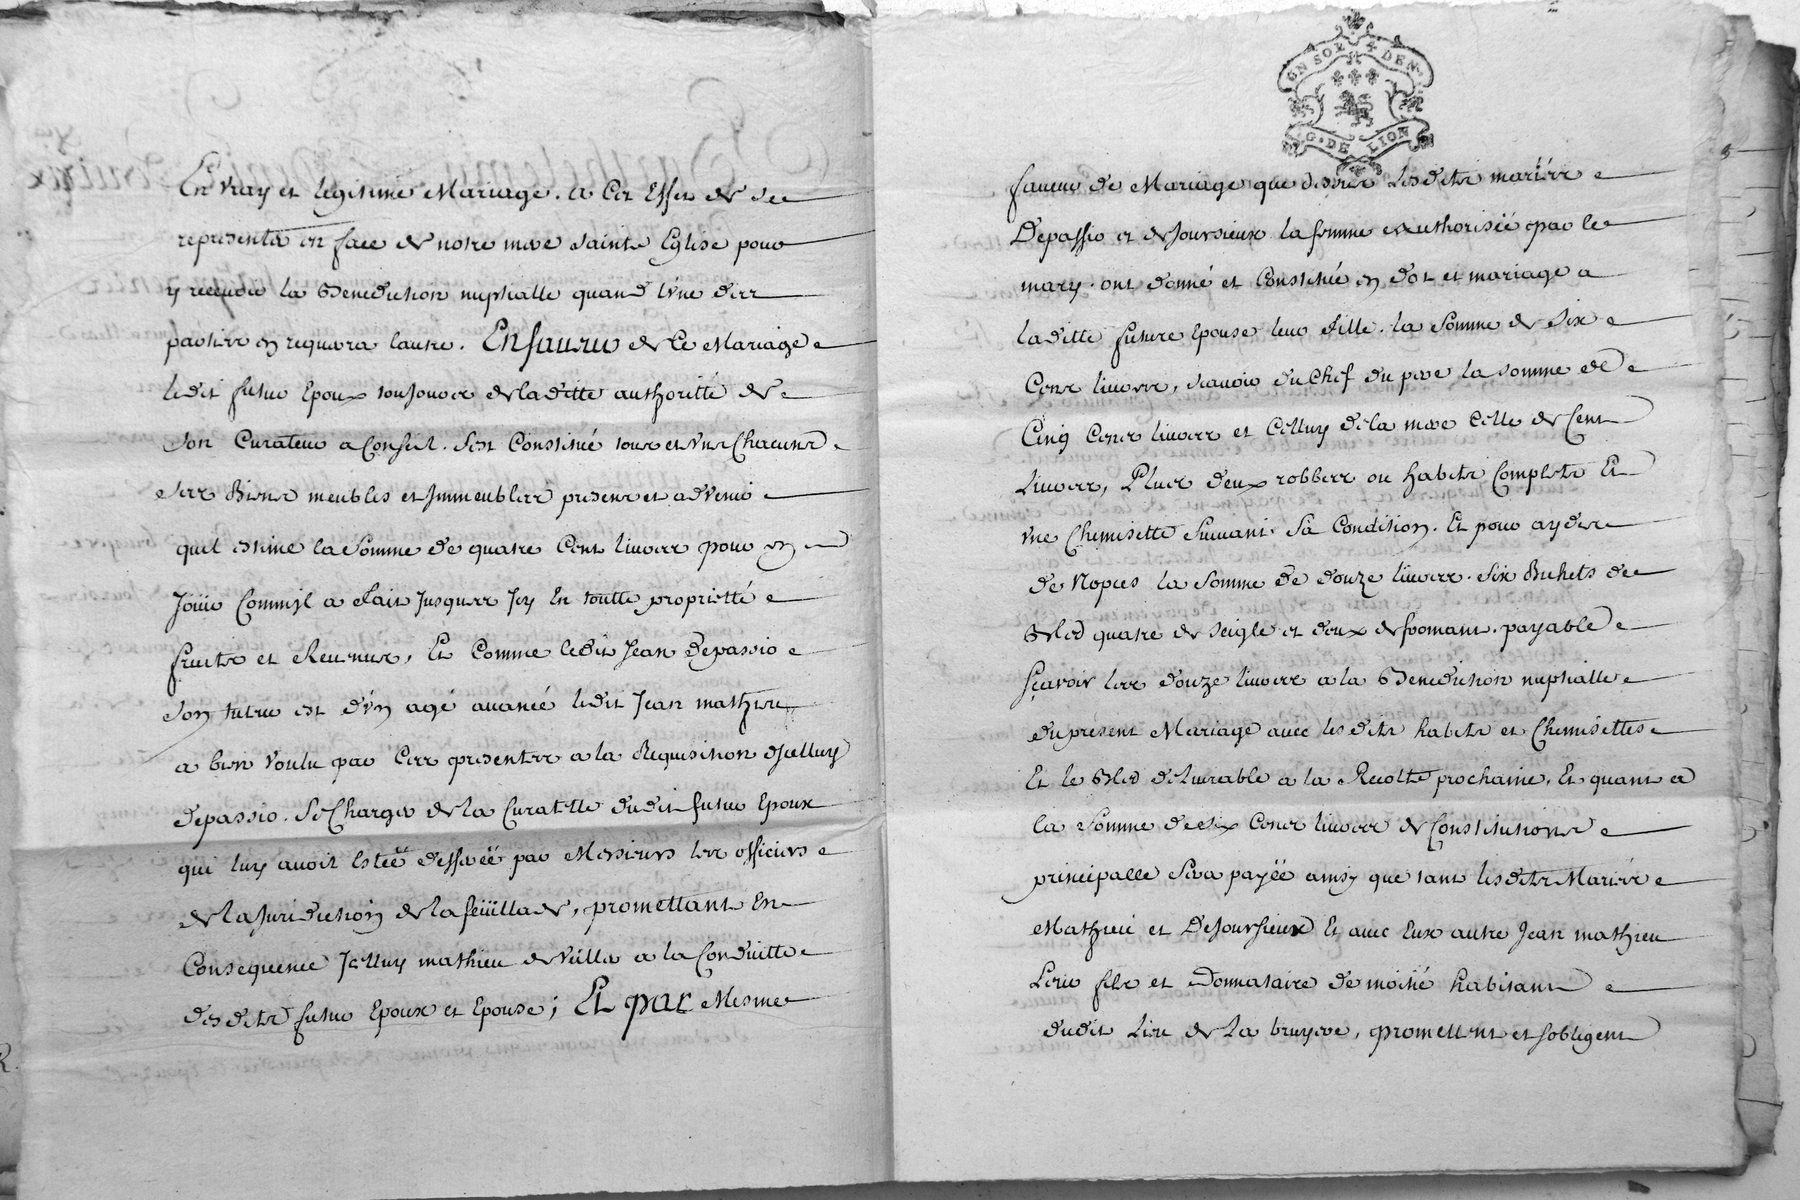 En vray et legitime Mariage. a Cet Effet de se
representer en face de notre mere Sainte Eglise pour
y recevoir la Benediction nuptialle quand l'une des
parties en requerra lautre. En faveur de Ce Mariage
ledit futur Epoux toujours de laditte authorité de
Son Curateur a Conseil. Sest Constitué tous et uns Chacuns
ses Biens meubles et Immeubles presents et advenir
quil estime la Somme de quatre Cent livres pour en
Jouir Comm'il a fait Jusques Icy En toutte proprietté
fruits et Revenus, Et Comme ledit Jean Depassio
Son tuteur est d'un agé avancé ledit Jean mathieu
a bien voulu par Ces presentes a la Requisition d'Icelluy
depassio. Se Charger de la Curatelle dudit futur Epoux
qui luy avoit Esteé defferéë par Messieurs les officiers
de la Juridiction de la feüillade, promettant En
Consequence Icelluy mathieu de veiller a la Conduitte
desdits futur Epoux et Epouse; Et par Mesme
ON SOL 4 DEN.
G. DE LION
faveur de Mariage que dessus Lesdits mariés
Depassio et deJoursieux la femme authoriséë par le
mary. ont donné et Constitué en dot et mariage a
laditte future Epouse leur fille. la Somme de Six
Cens livres, scavoir du Chef du pere la somme de
Cinq Cens livres et Celluy de la mere Celle de Cent
Livres, Plus deux robbes ou habits Complets Et
une Chemisette Suivant Sa Condition. Et pour ayder
de Nopces la Somme de douze livres. Six Bichets de
Bled quatre de Seigle et deux de fromant. payable
sçavoir les douze livres a la Benediction nuptialle
du présent Mariage avec lesdits habits et Chemisettes
Et le Bled délivrable a la Recolte prochaine, Et quant a
la Somme de Six Cens livres de Constitution
principalle Sera payéë ainsy que tant lesdits Mariés
Mathieu et DeJoursieux Et avec Eux autre Jean mathieu
Leur fils et Donnataire de moitié habitant
dudit Lieu de La bruyere, promettent et sobligent